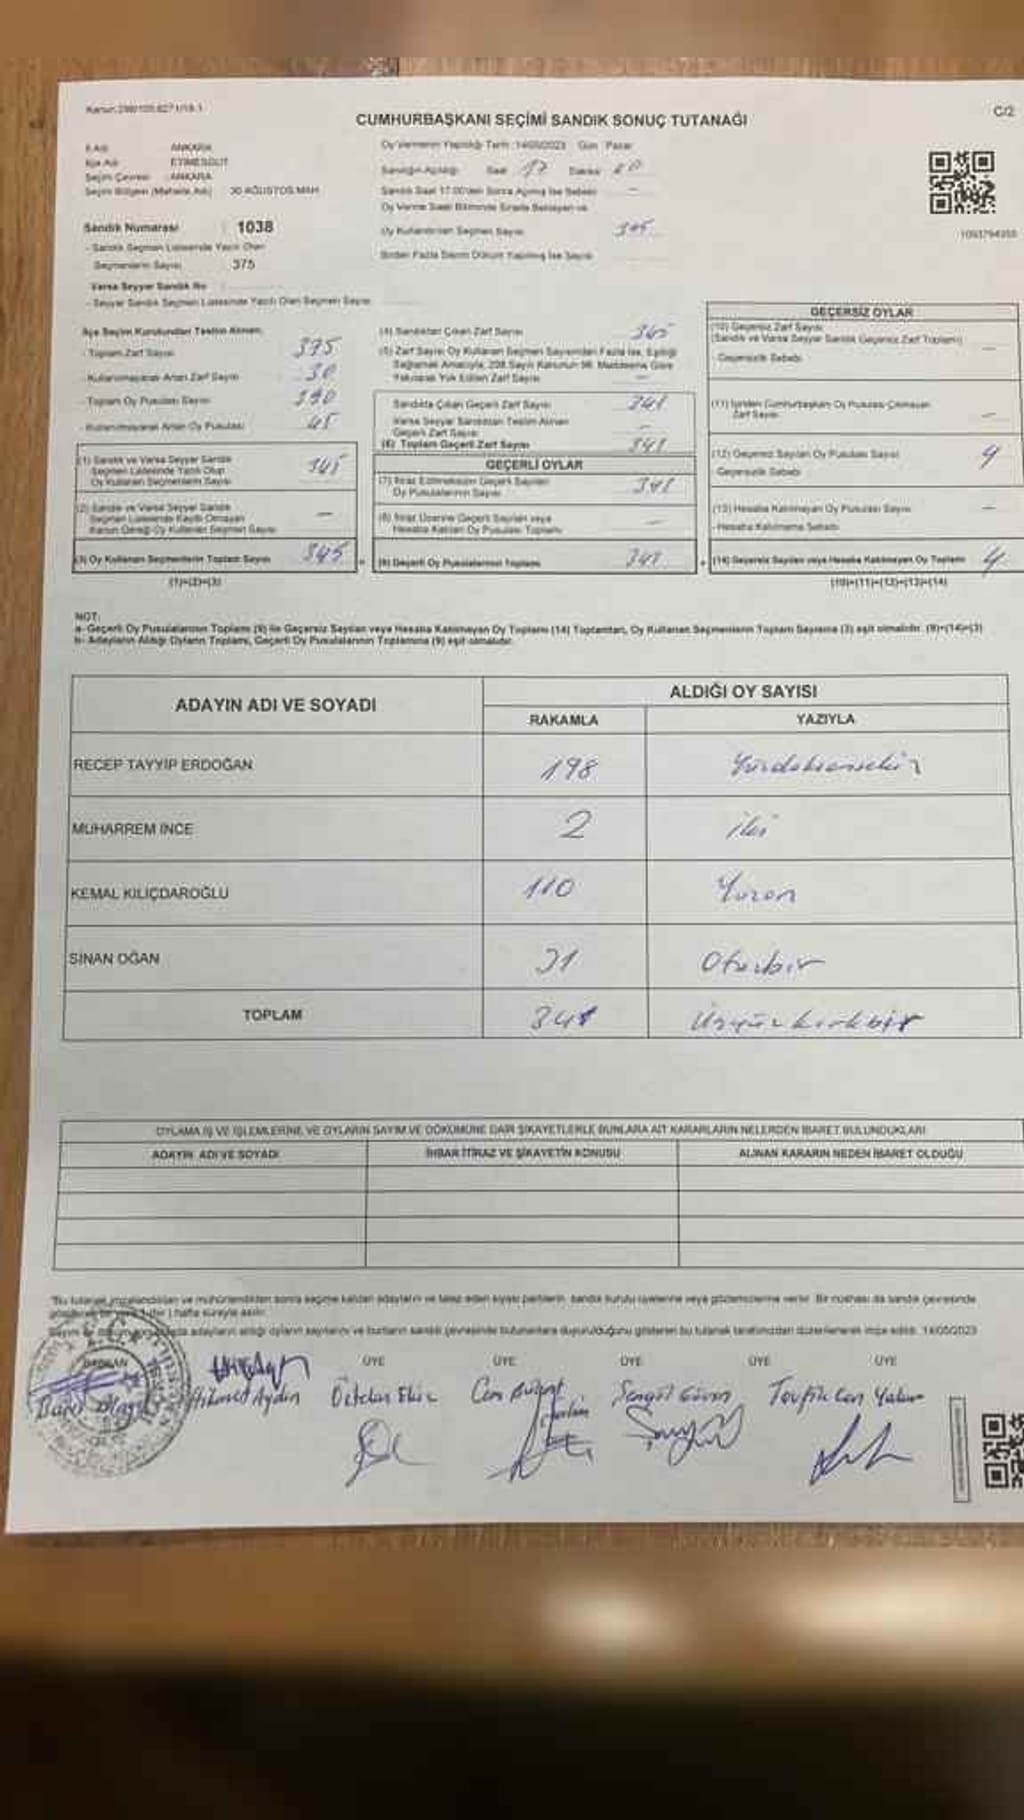 Kanun:298/105,6271/19.1
C/2
CUMHURBAŞKANI SEÇİMİ SANDIK SONUÇ TUTANAĞI
İl Adı : ANKARA
İlçe Adı : ETİMESGUT
Seçim Çevresi : ANKARA
Seçim Bölgesi (Mahalle Adı) : 30 AĞUSTOS MAH.
Sandık Numarası : 1038
- Sandık Seçmen Listesinde Yazılı Olan
Seçmenlerin Sayısı 375
Varsa Seyyar Sandık No :
- Seyyar Sandık Seçmen Listesinde Yazılı Olan Seçmen Sayısı
Oy Vermenin Yapıldığı Tarih :14/05/2023 Gün : Pazar
Sandığın Açıldığı Saat 17 Dakika
Sandık Saat 17.00'den Sonra Açılmış İse Sebebi –
Oy Verme Saati Bitiminde Sırada Bekleyen ve
Oy Kullandırılan Seçmen Sayısı 345
Birden Fazla Sayım Döküm Yapılmış İse Sayısı
İlçe Seçim Kurulundan Teslim Alınan:
- Toplam Zarf Sayısı 375
- Kullanılmayarak Artan Zarf Sayısı 30
- Toplam Oy Pusulası Sayısı 390
- Kullanılmayarak Artan Oy Pusulası 45
(1) Sandık ve Varsa Seyyar Sandık
Seçmen Listesinde Yazılı Olup
Oy Kullanan Seçmenlerin Sayısı 345
(2) Sandık ve Varsa Seyyar Sandık
Seçmen Listesinde Kayıtlı Olmayan
Kanun Gereği Oy Kullanan Seçmen Sayısı –
(3) Oy Kullanan Seçmenlerin Toplam Sayısı 345
(1)+(2)=(3)
(4) Sandıktan Çıkan Zarf Sayısı 345
(5) Zarf Sayısı Oy Kullanan Seçmen Sayısından Fazla ise, Eşitliği
Sağlamak Amacıyla, 298 Sayılı Kanunun 98. Maddesine Göre
Yakılarak Yok Edilen Zarf Sayısı –
Sandıkta Çıkan Geçerli Zarf Sayısı 341
Varsa Seyyar Sandıktan Teslim Alınan
Geçerli Zarf Sayısı –
(6) Toplam Geçerli Zarf Sayısı 341
GEÇERLİ OYLAR
(7) İtiraz Edilmeksizin Geçerli Sayılan
Oy Pusulalarının Sayısı 341
(8) İtiraz Üzerine Geçerli Sayılan veya
Hesaba Katılan Oy Pusulası Toplamı –
(9) Geçerli Oy Pusulalarının Toplamı 341
GEÇERSİZ OYLAR
(10) Geçersiz Zarf Sayısı
(Sandık ve Varsa Seyyar Sandık Geçersiz Zarf Toplamı) –
- Geçersizlik Sebebi:
(11) İçinden Cumhurbaşkanı Oy Pusulası Çıkmayan
Zarf Sayısı –
(12) Geçersiz Sayılan Oy Pusulası Sayısı 4
Geçersizlik Sebebi:
(13) Hesaba Katılmayan Oy Pusulası Sayısı –
- Hesaba Katılmama Sebebi:
(14) Geçersiz Sayılan veya Hesaba Katılmayan Oy Toplamı 4
(10)+(11)+(12)+(13)=(14)
NOT:
a- Geçerli Oy Pusulalarının Toplamı (9) ile Geçersiz Sayılan veya Hesaba Katılmayan Oy Toplamı (14) Toplamları, Oy Kullanan Seçmenlerin Toplam Sayısına (3) eşit olmalıdır. (9)+(14)=(3)
b- Adayların Aldığı Oyların Toplamı, Geçerli Oy Pusulalarının Toplamına (9) eşit olmalıdır.
ADAYIN ADI VE SOYADI
ALDIĞI OY SAYISI
RAKAMLA YAZIYLA
RECEP TAYYİP ERDOĞAN 198 Yüzdoksansekiz
MUHARREM İNCE 2 iki
KEMAL KILIÇDAROĞLU 110 Yüzon
SİNAN OĞAN 31 Otuzbir
TOPLAM 341 Üçyüzkırkbir
OYLAMA İŞ VE İŞLEMLERİNE VE OYLARIN SAYIM VE DÖKÜMÜNE DAİR ŞİKAYETLERLE BUNLARA AİT KARARLARIN NELERDEN İBARET BULUNDUKLARI
ADAYIN ADI VE SOYADI İHBAR İTİRAZ VE ŞİKAYETİN KONUSU ALINAN KARARIN NEDEN İBARET OLDUĞU
*Bu tutanak imzalandıktan ve mühürlendikten sonra seçime katılan adayların ve talep eden siyasi partilerin, sandık kurulu üyelerine veya gözlemcilerine verilir. Bir nüshası da sandık çevresinde
bir yere 1 (bir) hafta süreyle asılır.
adayların aldığı oyların sayılarını ve bunların sandık çevresinde bulunanlara duyurulduğunu gösteren bu tutanak tarafımızdan düzenlenerek imza edildi. 14/05/2023
BAŞKAN ÜYE ÜYE ÜYE ÜYE ÜYE
Ahmet Aydın Can Bülent Şengül Güven Tevfik Can